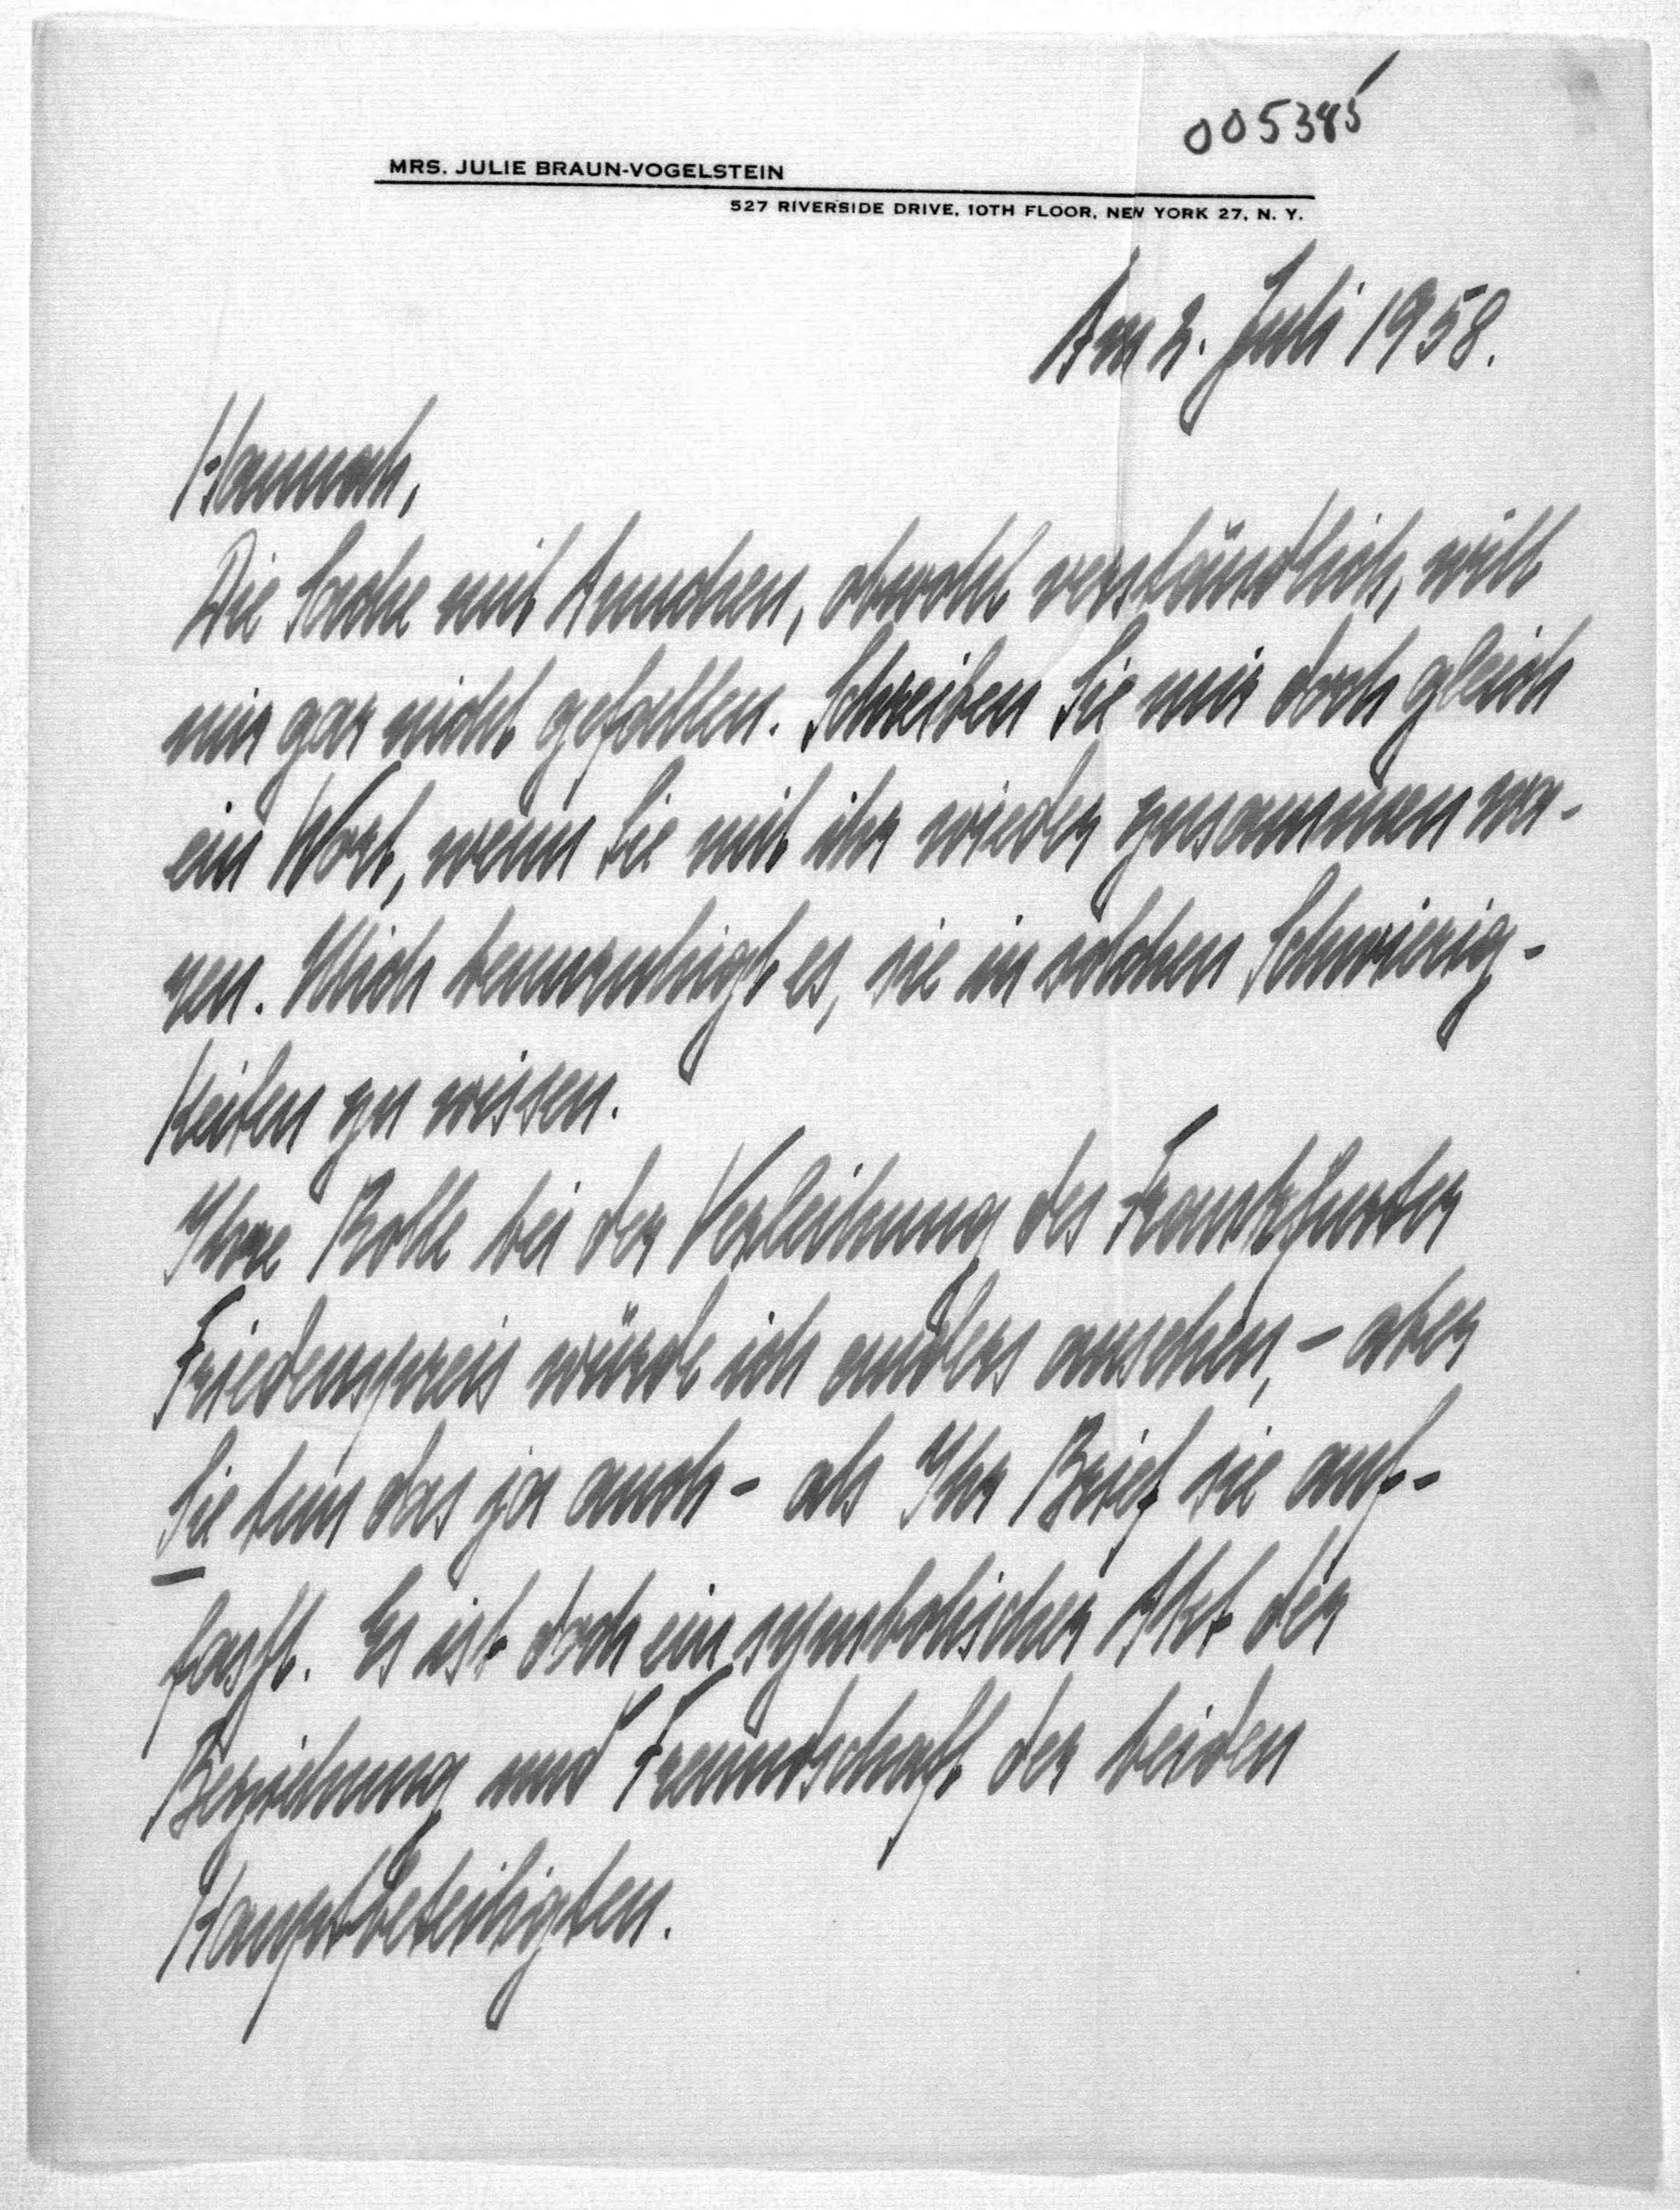 005385
MRS. JULIE BRAUN-VOGELSTEIN
527 RIVERSIDE DRIVE, 10TH FLOOR, NEW YORK 27, N. Y.
Am 2. Juli 1958.
Hannah,
Die Sache mit Annchen, obwohl verständlich, will
mir gar nicht gefallen. Schreiben Sie mir doch gleich
ein Wort, wenn Sie mit ihr wieder zusammen wa-
ren. Mich beunruhigt es, sie in solchen Schwierig-
keiten zu wissen.
Ihre Rolle bei der Verleihung des Frankfurter
Friedenspreis würde ich anders ansehen, - aber
Sie tun das ja auch - als Ihr Brief sie auf-
fasst. Es ist doch ein symbolischer Akt der
Beziehung und Freundschaft der beiden
Hauptbeteiligten.